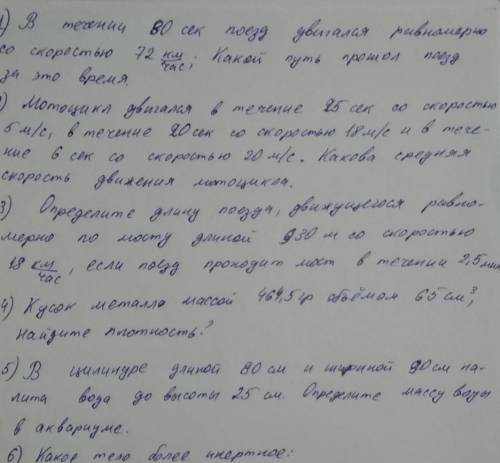 1) В течении 80 сек поезд двигался равномерно
со скоростью 72 км/час; Какой путь прошол поезд
за это время.
) Мотоцикл двигался в течение 25 сек со скоростью
5 м/с, в течение 20 сек со скоростью 18 м/с и в тече-
ние 6 сек со скоростью 20 м/с. Какова средняя
скорость движения мотоцикла.
3) Определите длину поезда, движущегося равно-
мерно по мосту длиной 930 м со скоростью
18 км/час, если поезд проходит мост в течении 2,5 мин
4) Кусок металла массой 461,5 гр объёмом 65 см³,
найдите плотность?
5) В цилиндре длиной 80 см и шириной 90 см на-
лита вода до высоты 25 см. Определите массу воды
в аквариуме.
6) Какое тело более инертное: